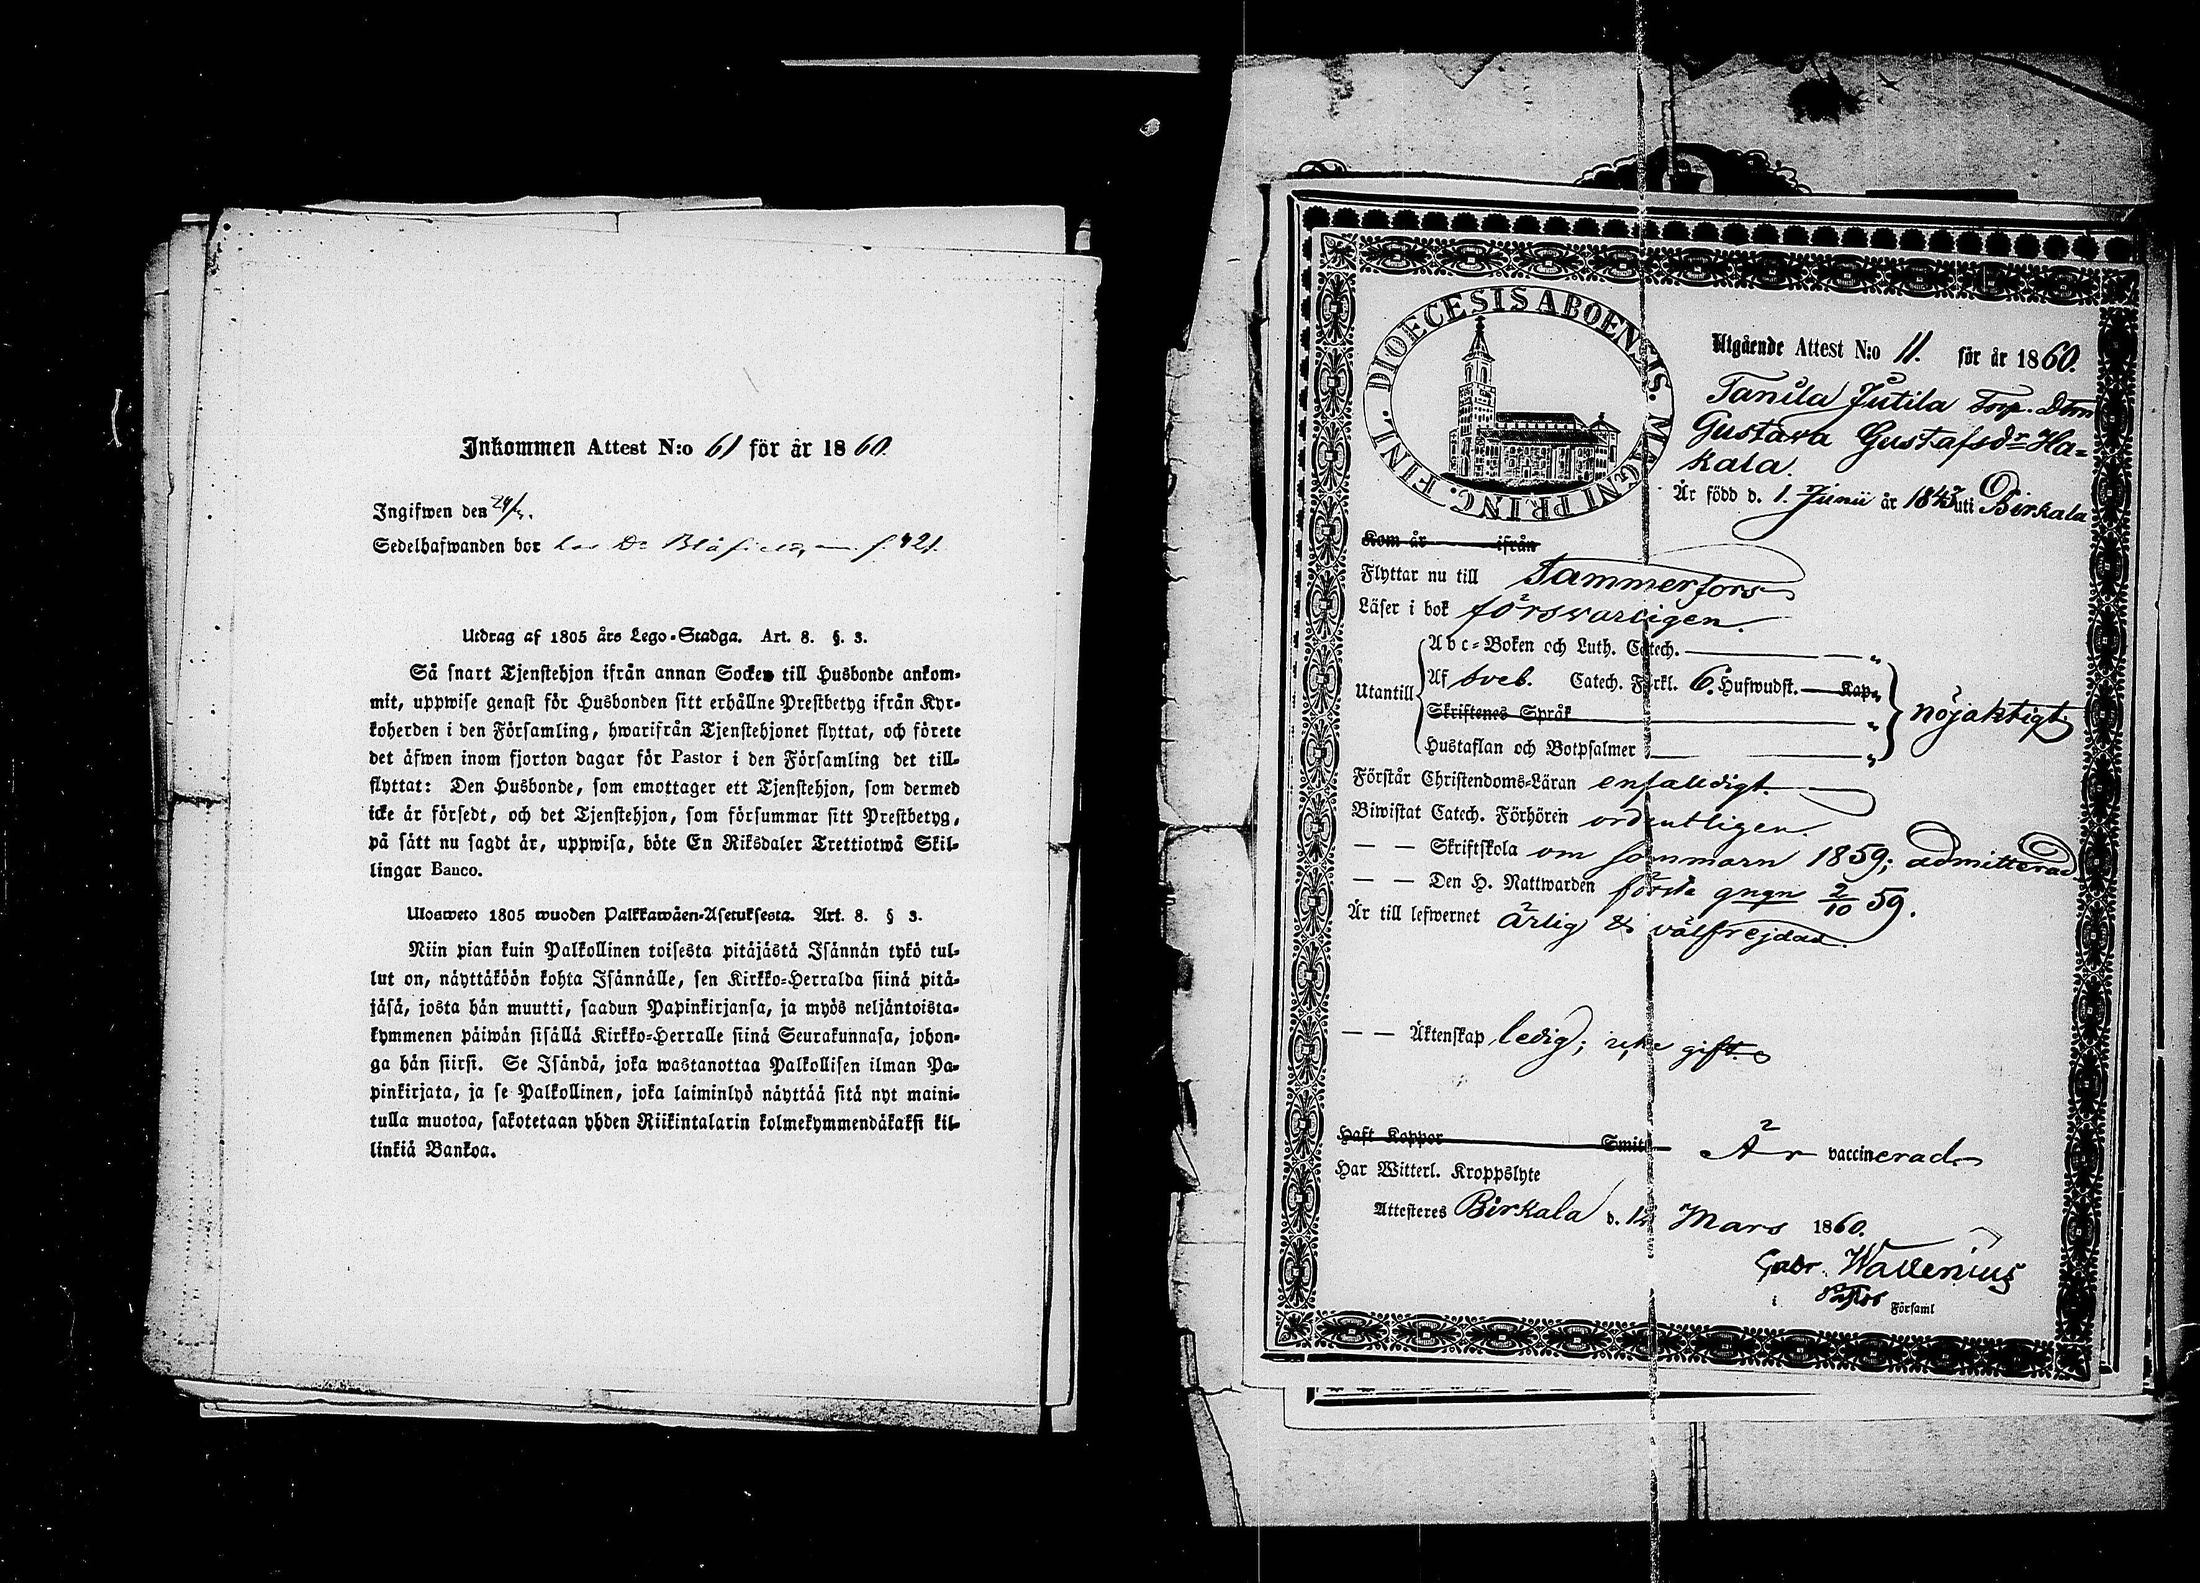 Inkommen Attest N:o 61 för år 1860.
Ingifwen den 24/3.
Sedelhafwanden bor hos f. 421.
Utdrag af 1805 års Lego-Stadga. Art. 8. §. 3.
Så snart Tjenstehjon ifrån annan Socken till Husbonde ankom-
mit, uppwise genast för Husbonden sitt erhållne Prestbetyg ifrån Kyr-
koherden i den Församling, hwarifrån Tjenstehjonet flyttat, och förete
det äfwen inom fjorton dagar för Pastor i den Församling det till-
flyttat: Den Husbonde, som emottager ett Tjenstehjon, som dermed
icke är försedt, och det Tjenstehjon, som försummar sitt Prestbetyg,
på sätt nu sagdt är, uppwisa, böte En Riksdaler Trettiotwå Skil-
lingar Banco.
Ulosweto 1805 wuoden Palkkawäen-Asetuksesta. Art. 8. § 3.
Niin pian kuin Palkollinen toisesta pitäjästä Isännän tykö tul-
lut on, näyttäköön kohta Isännälle, sen Kirkko-Herralda siinä pitä-
jäsä, josta hän muutti, saadun Papinkirjansa, ja myös neljäntoista-
kymmenen päiwän sisällä Kirkko-Herralle siinä Seurakunnasa, johon-
ga hän siirsi. Se Isändä, joka wastanottaa Palkollisen ilman Pa-
pinkirjata, ja se Palkollinen, joka laiminlyö näyttää sitä nyt maini-
tulla muotoa, sakotetaan yhden Riikintalarin kolmekymmendäkaksi kil-
linkiä Bankoa.
DIOECESIS ABOENSIS. MAGNI PRINC. FINL.
Utgående Attest N:o 11. för år 1860.
Tanila Jutila Torp. Dtrn
Gustava Gustafsdr Ha-
kala.
Är född d. 1. Junii år 1843 uti Birkala
Kom år ifrån
Flyttar nu till Tammerfors
Läser i bok försvarligen.
Abc-Boken och Luth. Catech. "
Utantill Af Sveb. Catech. Förkl. 6. Hufwudst. Kap. nöjaktigt
Skriftenes Språk "
Hustaflan och Botpsalmer "
Förstår Christendoms-Läran enfaldigt.
Biwistat Catech. Förhören ordentligen.
— — Skriftskola om sommarn 1859; admitterad
— — Den H. Nattwarden första gngn 2/10 59.
Är till lefwernet ärlig & välfrejdad.
— — Äktenskap ledig; icke gift
Haft Koppor Smitt Är vaccinerad
Har Witterl. Kroppslyte
Attesteres Birkala d. 14 Mars 1860.
Gabr. Wallenius
i Pastor Församl